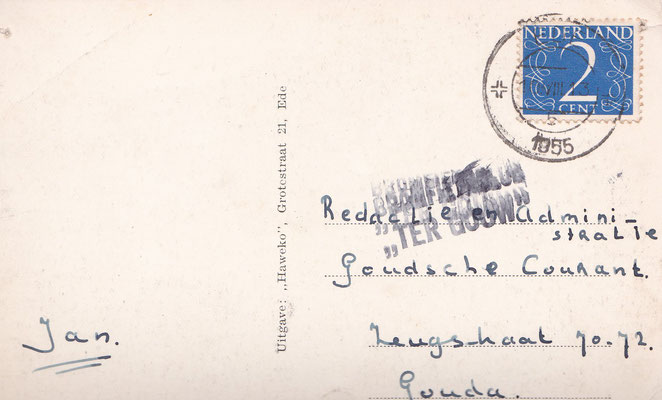 NEDERLAND
2
CENT
1955
Uitgave: „Haweko", Grotestraat 21, Ede
„TER GOUW"
Redactie en Admini-
stratie
Goudsche Courant.
Jan.
70-72.
Gouda.